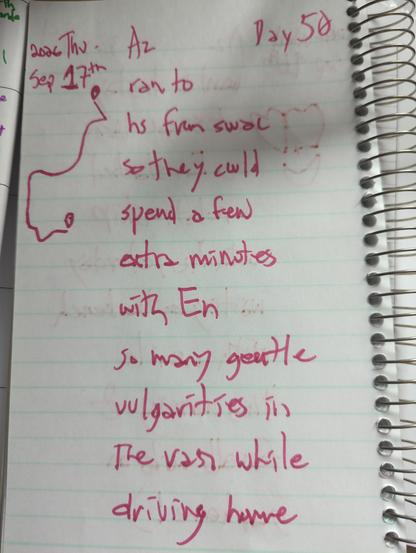 2026 Thu. Az Day 50
Sep 17th ran to
hs from swac
so they could
spend a few
extra minutes
with En
so many gentle
vulgarities in
the van while
driving home